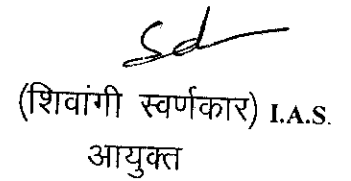 Sd
(शिवांगी स्वर्णकार) I.A.S.
आयुक्त